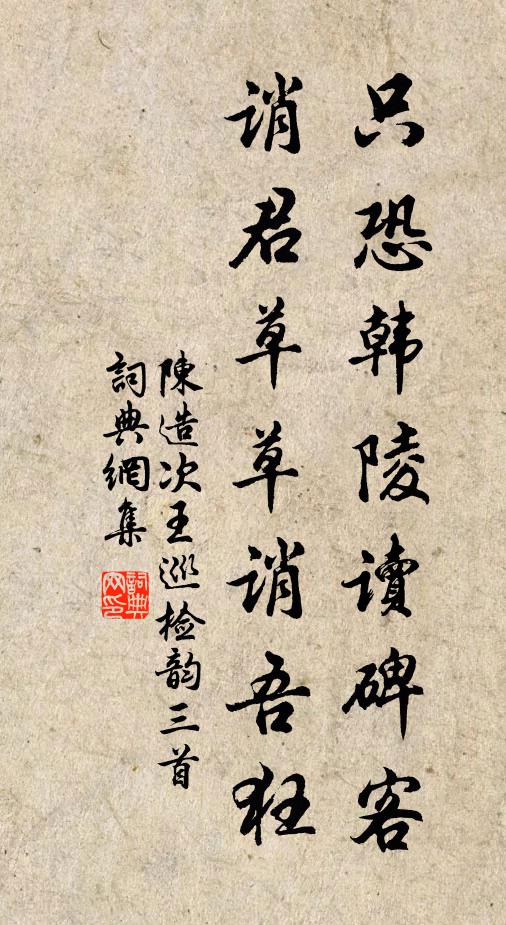 只恐韩陵读碑客
诮君草草诮吾狂
陳造次王巡检韵三首
詞典網集
詞典網印